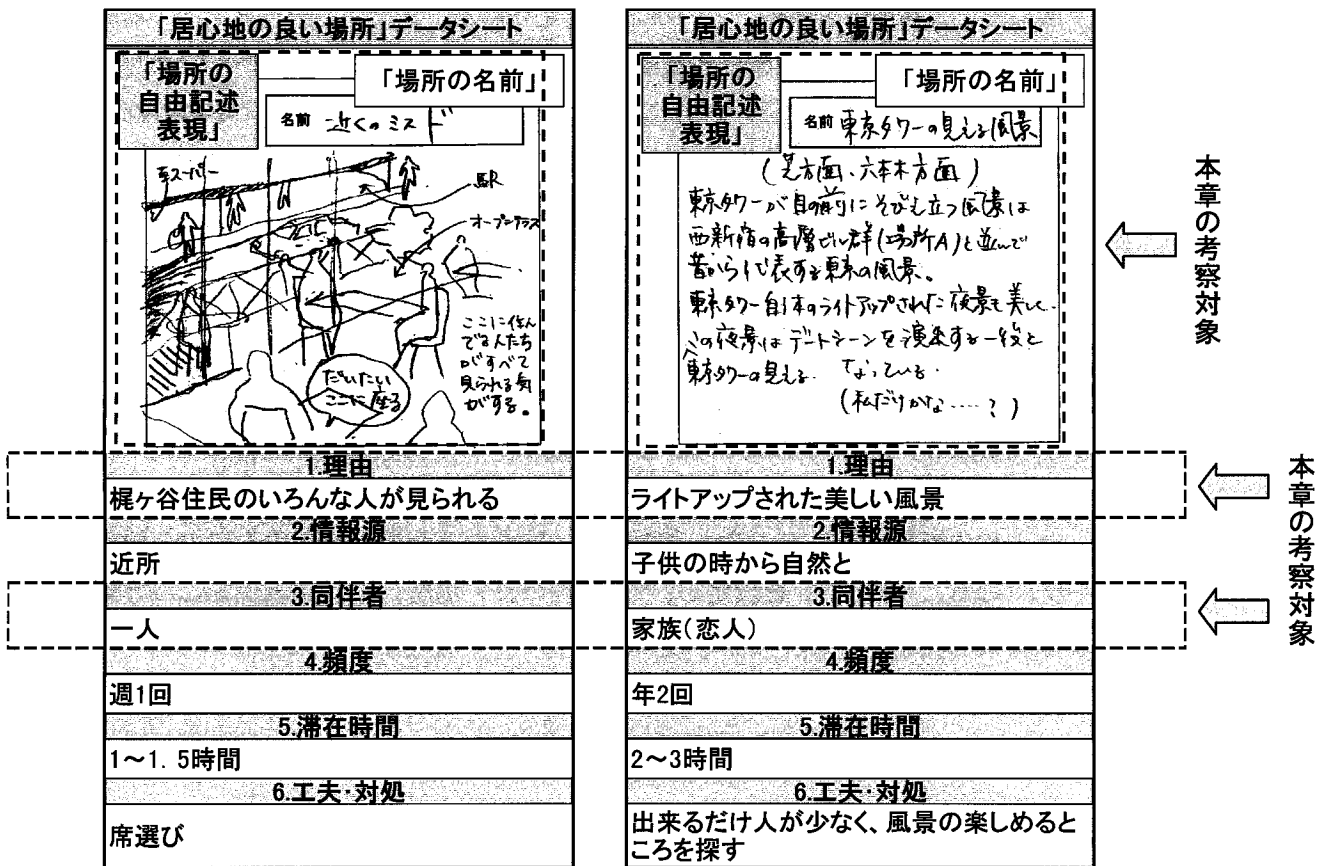 「居心地の良い場所」データシート
「場所の
自由記述
表現」
「場所の名前」
名前 近くのミスド
スーパー
駅
オープンテラス
ここに住ん
でる人たち
がすべて
見られる気
がする。
だいたい
ここに座る
1.理由
梶ヶ谷住民のいろんな人が見られる
2.情報源
近所
3.同伴者
一人
4.頻度
週1回
5.滞在時間
1～1.5時間
6.工夫・対処
席選び
「居心地の良い場所」データシート
「場所の
自由記述
表現」
「場所の名前」
名前 東京タワーの見える風景
(芝方面、六本木方面)
東京タワーが目の前にそびえ立つ風景は
西新宿の高層ビル群(場所A)と並んで
昔から代表する東京の風景。
東京タワー自体のライトアップされた夜景も美しく
この夜景はデートシーンを演出する一役と
東京タワーの見える なっている。
(私だけかな……?)
1.理由
ライトアップされた美しい風景
2.情報源
子供の時から自然と
3.同伴者
家族(恋人)
4.頻度
年2回
5.滞在時間
2～3時間
6.工夫・対処
出来るだけ人が少なく、風景の楽しめると
ころを探す
本章の考察対象
本章の考察対象